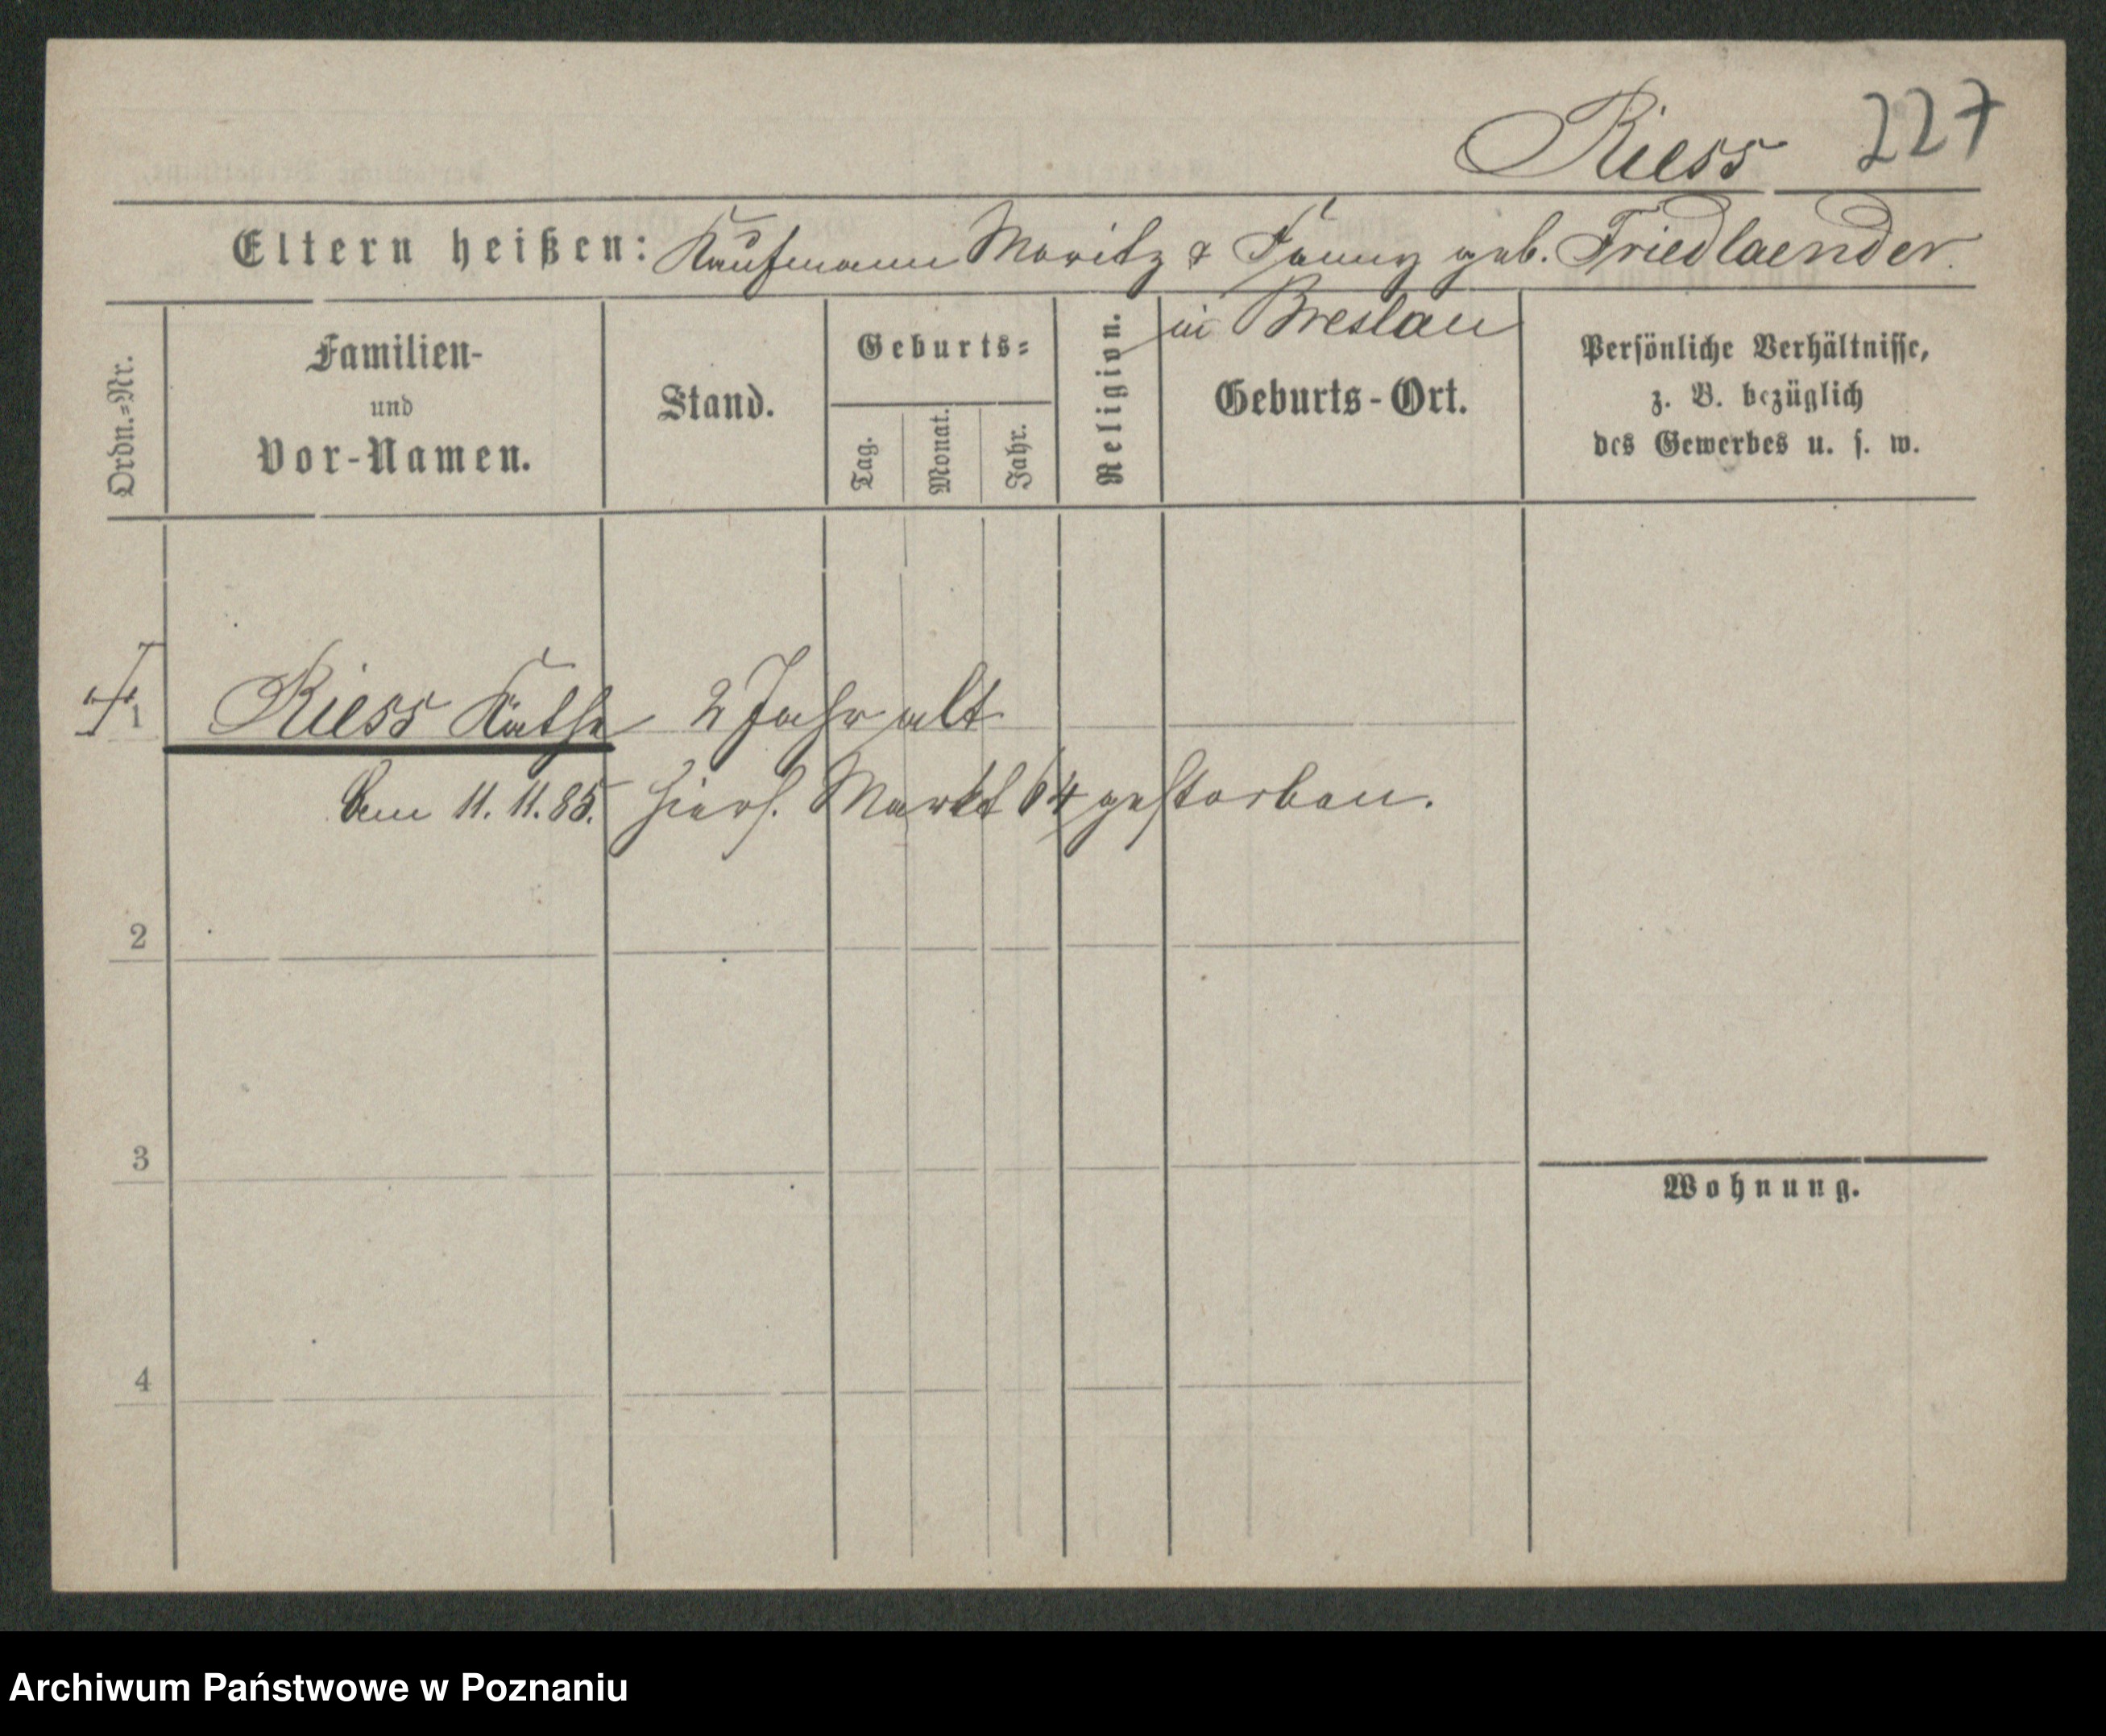 Riess 227
Eltern heißen: Kaufmann Moritz & Fanny geb. Friedlaender.
in Breslau
Ordn.=Nr.
Familien-
und
Vor-Namen.
Stand.
Geburts=
Tag.
Monat.
Jahr.
Religion.
Geburts-Ort.
Persönliche Verhältnisse,
z. B. bezüglich
des Gewerbes u. s. w.
1 Riess Käthe 2 Jahr alt
Am 11. 11. 85. hiers. Markt 64 gestorben.
2
3
Wohnung.
4
Archiwum Państwowe w Poznaniu